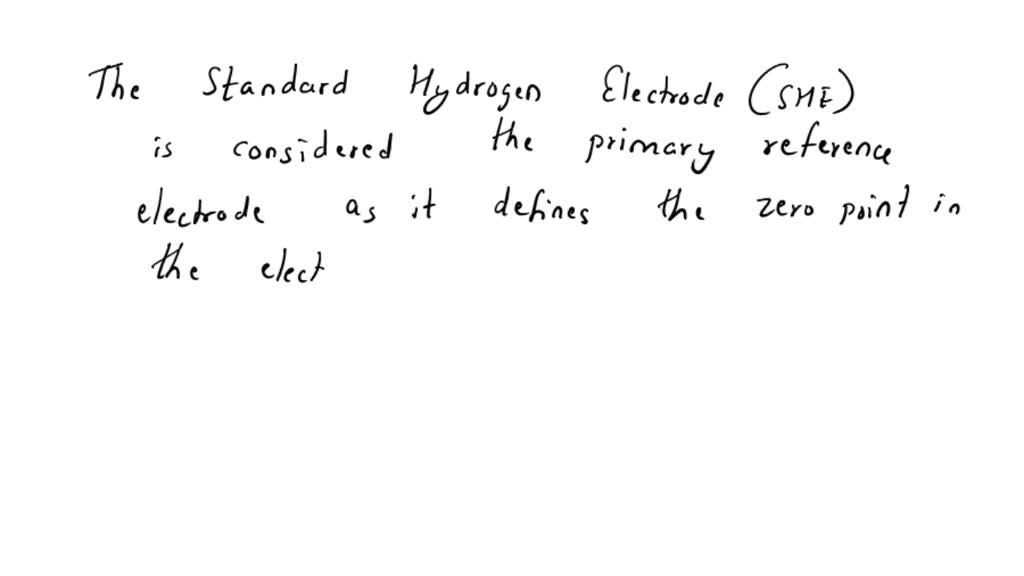 The Standard Hydrogen Electrode (SHE)
is considered the primary reference
electrode as it defines the zero point in
the elect